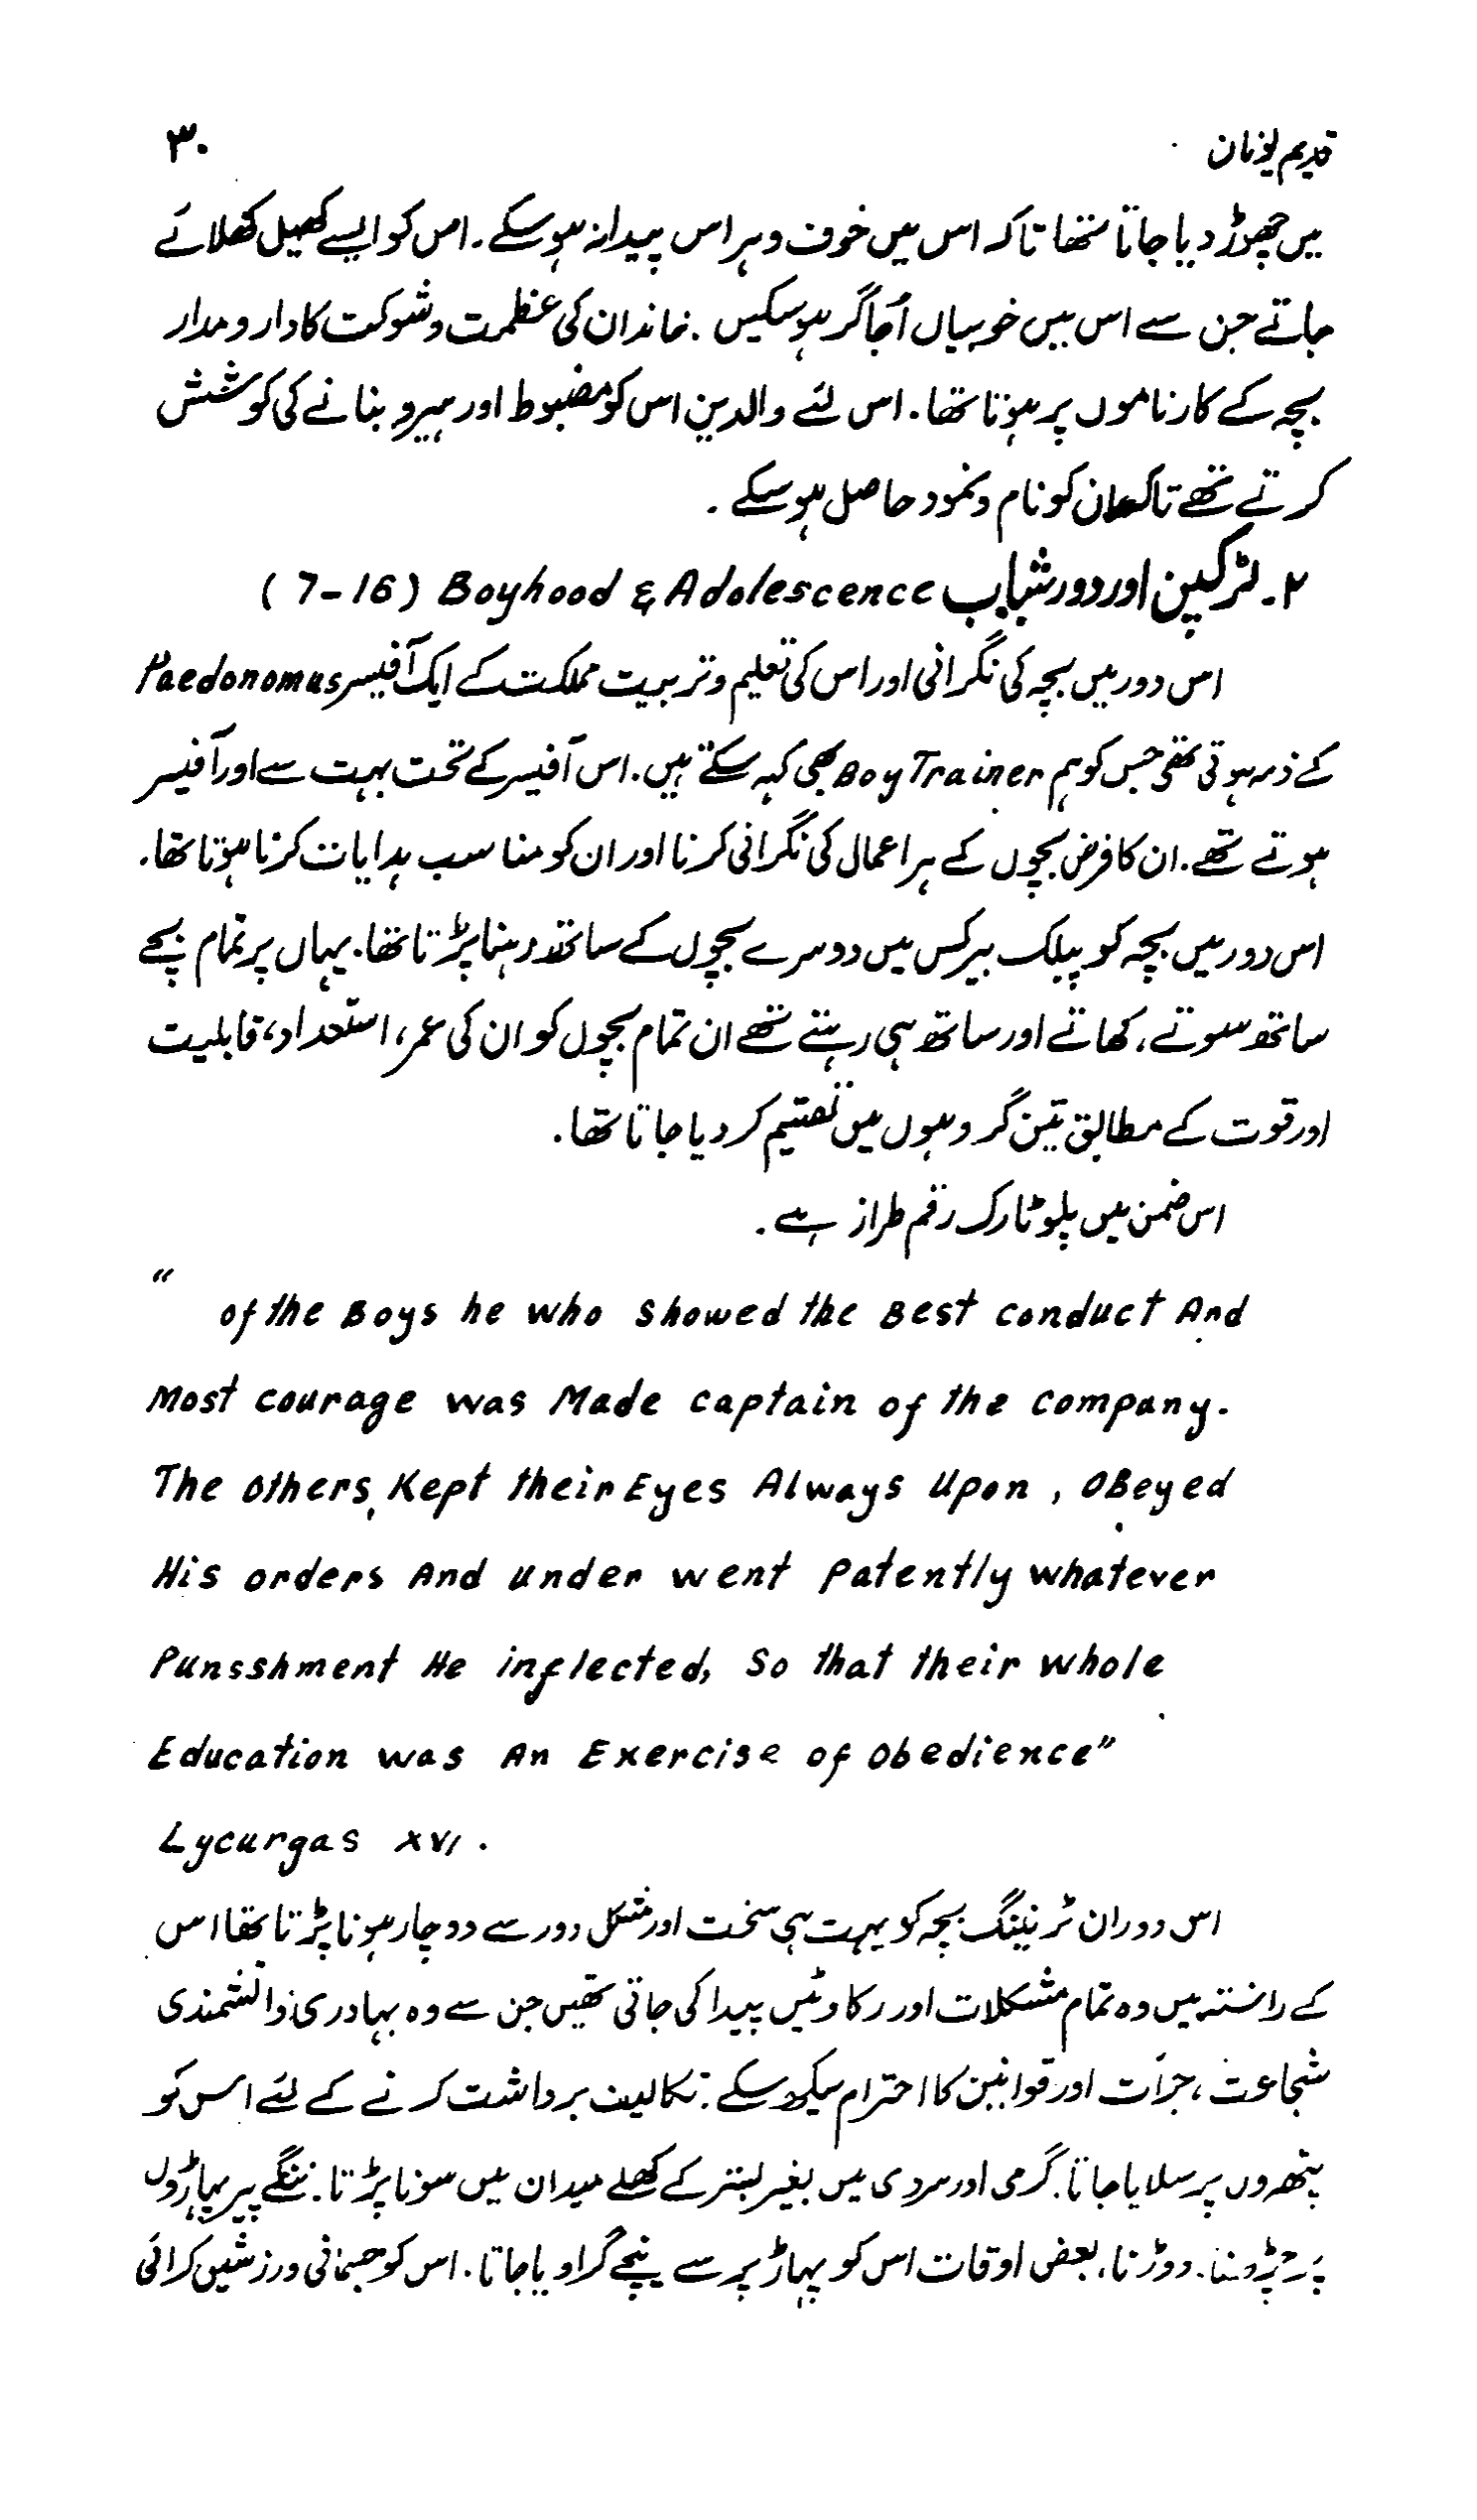 قدیم یونان ۳۰
میں چھوڑ دیا جاتا تھا تاکہ اس میں خوف و ہراس پیدا نہ ہو سکے۔ اس کو ایسے کھیل کھلائے
جاتے جن سے اس میں خوبیاں اُجاگر ہو سکیں۔ خاندان کی عظمت و شوکت کا دار و مدار
بچہ کے کارناموں پر ہوتا تھا۔ اس لئے والدین اس کو مضبوط اور ہیرو بنانے کی کوشش
کرتے تھے تاکہ ان کو نام و نمود حاصل ہو سکے۔
۲۔ لڑکپن اور دور شباب Boyhood & Adolescence (7-16)
اس دور میں بچہ کی نگرانی اور اس کی تعلیم و تربیت مملکت کے ایک آفیسر Paedonomus
کے ذمہ ہوتی تھی جس کو ہم Boy Trainer بھی کہہ سکتے ہیں۔ اس آفیسر کے تحت بہت سے اور آفیسر
ہوتے تھے۔ ان کا فرض بچوں کے ہر اعمال کی نگرانی کرنا اور ان کو مناسب ہدایات کرنا ہوتا تھا۔
اس دور میں بچہ کو پبلک بیرکس میں دوسرے بچوں کے ساتھ رہنا پڑتا تھا۔ یہاں پر تمام بچے
ساتھ سوتے، کھاتے اور ساتھ ہی رہتے تھے ان تمام بچوں کو ان کی عمر، استعداد، قابلیت
اور قوت کے مطابق تین گروہوں میں تقسیم کر دیا جاتا تھا۔
اس ضمن میں پلوٹارک رقم طراز ہے۔
" of the Boys he who showed the Best conduct And
Most courage was Made captain of the company.
The others, Kept their Eyes Always Upon, OBeyed
His orders And under went Patently whatever
Punsshment He inflected, So that their whole
Education was An Exercise of obedience"
Lycurgas XVI.
اس دوران ٹریننگ بچہ کو بہت ہی سخت اور مشکل دور سے دوچار ہونا پڑتا تھا اس
کے راستہ میں وہ تمام مشکلات اور رکاوٹیں پیدا کی جاتی تھیں جن سے وہ بہادری، دانشمندی
شجاعت، جرأت اور قوانین کا احترام سیکھ سکے۔ تکالیف برداشت کرنے کے لئے اس کو
پتھروں پر سلایا جاتا۔ گرمی اور سردی میں بغیر بستر کے کھلے میدان میں سونا پڑتا۔ ننگے پیر پہاڑوں
پر چڑھنا۔ دوڑنا، بعض اوقات اس کو پہاڑ پر سے نیچے گرا دیا جاتا۔ اس کو جسمانی ورزشیں کرائی